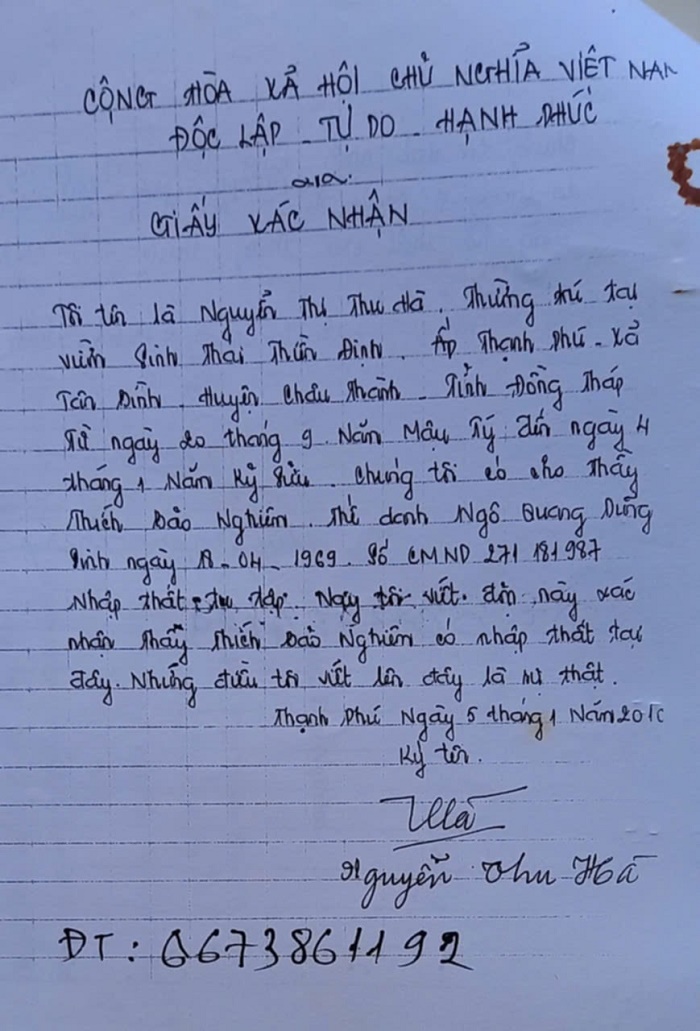 CỘNG HÒA XẢ HỘI CHỦ NGHĨA VIỆT NAM
ĐỘC LẬP - TỰ DO - HẠNH PHÚC
GIẤY XÁC NHẬN
Tôi tên là Nguyễn Thị Thu Hà. Thường trú tại
vườn Sinh Thái Thuần Định. Ấp Thạnh Phú - Xả
Tân Bình. Huyện Châu Thành. Tỉnh Đồng Tháp
Từ ngày 20 tháng 9 Năm Mậu Tý đến ngày 4
tháng 1 Năm Kỷ Sửu. Chúng tôi có cho Thầy
Thích Bảo Nghiêm. Thế danh Ngô Quang Dũng
Sinh ngày 18-04-1969. Số CMND 271 181987
Nhập thất tu tập. Nay tôi viết đơn này xác
nhận Thầy Thích Bảo Nghiêm có nhập thất tại
đây. Những điều tôi viết lên đây là sự thật.
Thạnh Phú Ngày 5 tháng 1 Năm 2010
Ký tên.
Hà
Nguyễn Thu Hà
ĐT: 0673861192